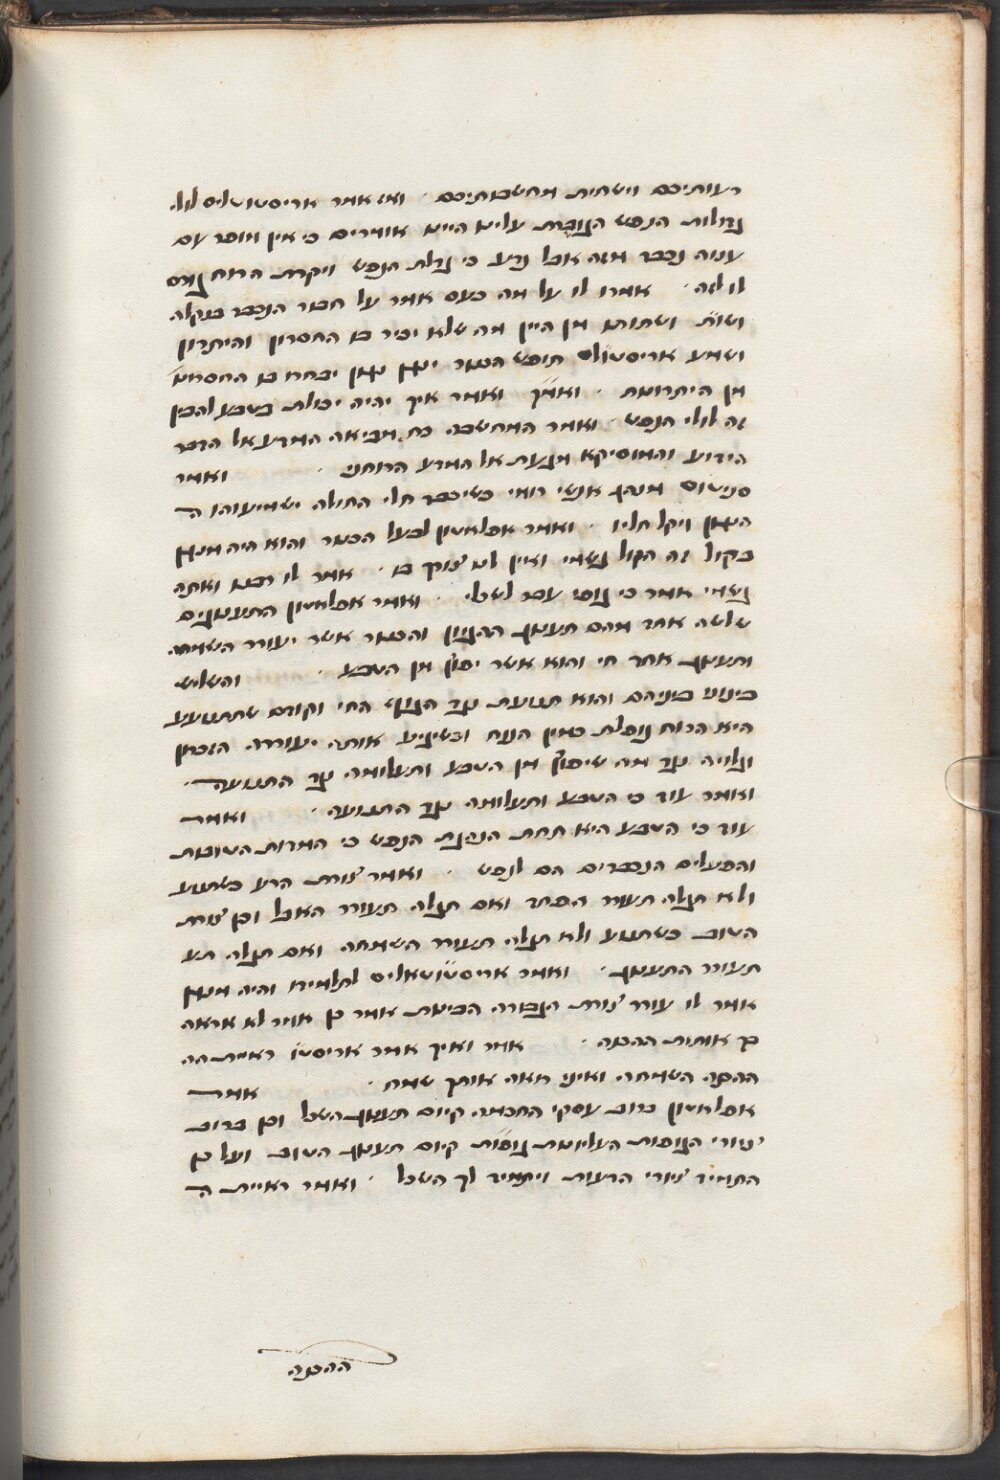 רעותיכם וישחית מחשבותיכם · ואז אמר אריסטוטליס לולי
גדולות הנפש הגוברת עלינו היינו אומרים כי אין מוסר עם
עניה נכבד מזה אבל נדע כי גדלת הנפש ויקרת הרוח גורם
לו לזה · אמרו לו על מה כעס אמר על חבור הנכבד בנקלה
ושתה ושתותו מן היין מה שלא יכיר בו החסרון והיתרון
ושמע אריסטוטלוס תופש הכנור ינגן נגון יבחרו בו החסרונות
מן היתרונות · ואמר איך יהיה יכולת בטבע להבין
זה לולי הנפש · ואמר המחשבה כח מביאה המדע אל הדבר
הידוע והמוסיקא מגעת אל המדע הרוחני · ואמר
מנהג אנשי רומי כשיכבד חלי החולה ישמיעוהו ה
הנגון ויקל חליו · ואמר אפלאטון לבעל הכנור והוא היה מנגן
בקול זה הקול גשמי ואין לנו צורך בו · אמר לו רבנו ואתה
גשמי אמר כי גופי עבד לשכלי · ואמר אפלאטון התענוגים
שלשה אחד מהם תענוג ההגיון והכנור אשר יעורר השמחה
ותענוג אחר חי והוא אשר יסור מן הטבע · והשלישי
בינוני ביניהם והוא תנועת נגד הגוף החי וקודם שתתנועע
היא הרוח נופלת כמין הנוח וכשיגיע אותה יעוררה הזכרון
וגלויה נגד מה שיסור מן הטבע ותעלומה נגד התנועה ·
ואמר עוד כי הטבע ותעלומה נגד התנועה · ואמר
עוד כי הטבע היא תחת הנהגת הנפש כי המדות הטובות
והפעלים הנכבדים הם לנפש · ואמר צורת הרע כשתנוע
ולא תגלה תעורר הפחד ואם תגלה תעורר האבל וכן צורת
הטוב כשתנוע ולא תגלה תעורר השמחה ואם תגלה תע
תעורר התענוג · ואמר אריסטוטאליס לתלמידו והיה מנגן
אמר לו עורר צורת הגבורה הביננות אמר כן אדוני לא אראה
בך אותות ההבנה · אמר ואיך אמר אריסטו ראיית הה
ההבנה השמחה ואיני רואה אותך שמח · אמר
אפלאטון ברוב עסקי החכמה קיום תענוג השכל וכן ברוב
ציורי הנופות העליונות קיום תענוג הטוב ועל כן
התמיד ציורי הדעות ויתמיד לך השכל · ואמר ראיית ה
ההבנה